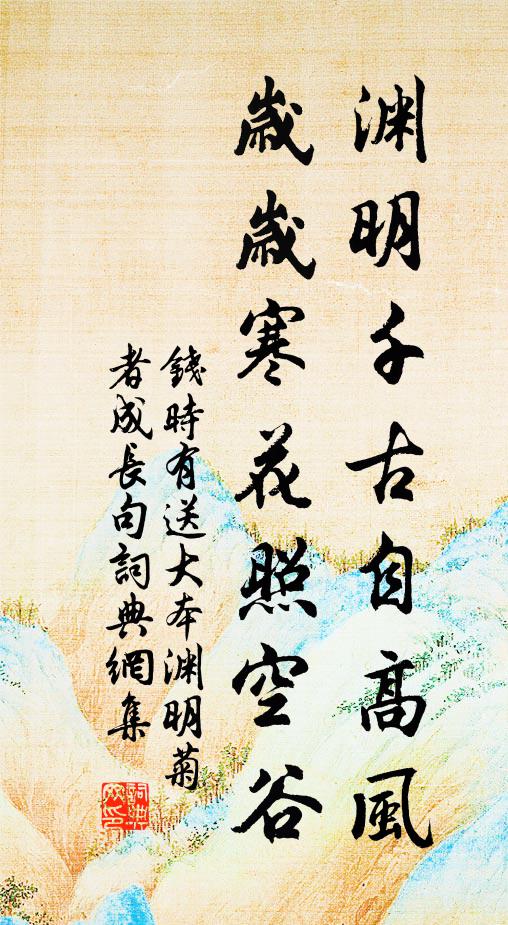 渊明千古自高風
歲歲寒花照空谷
錢時有送大本渊明菊
者成長句詞典網集